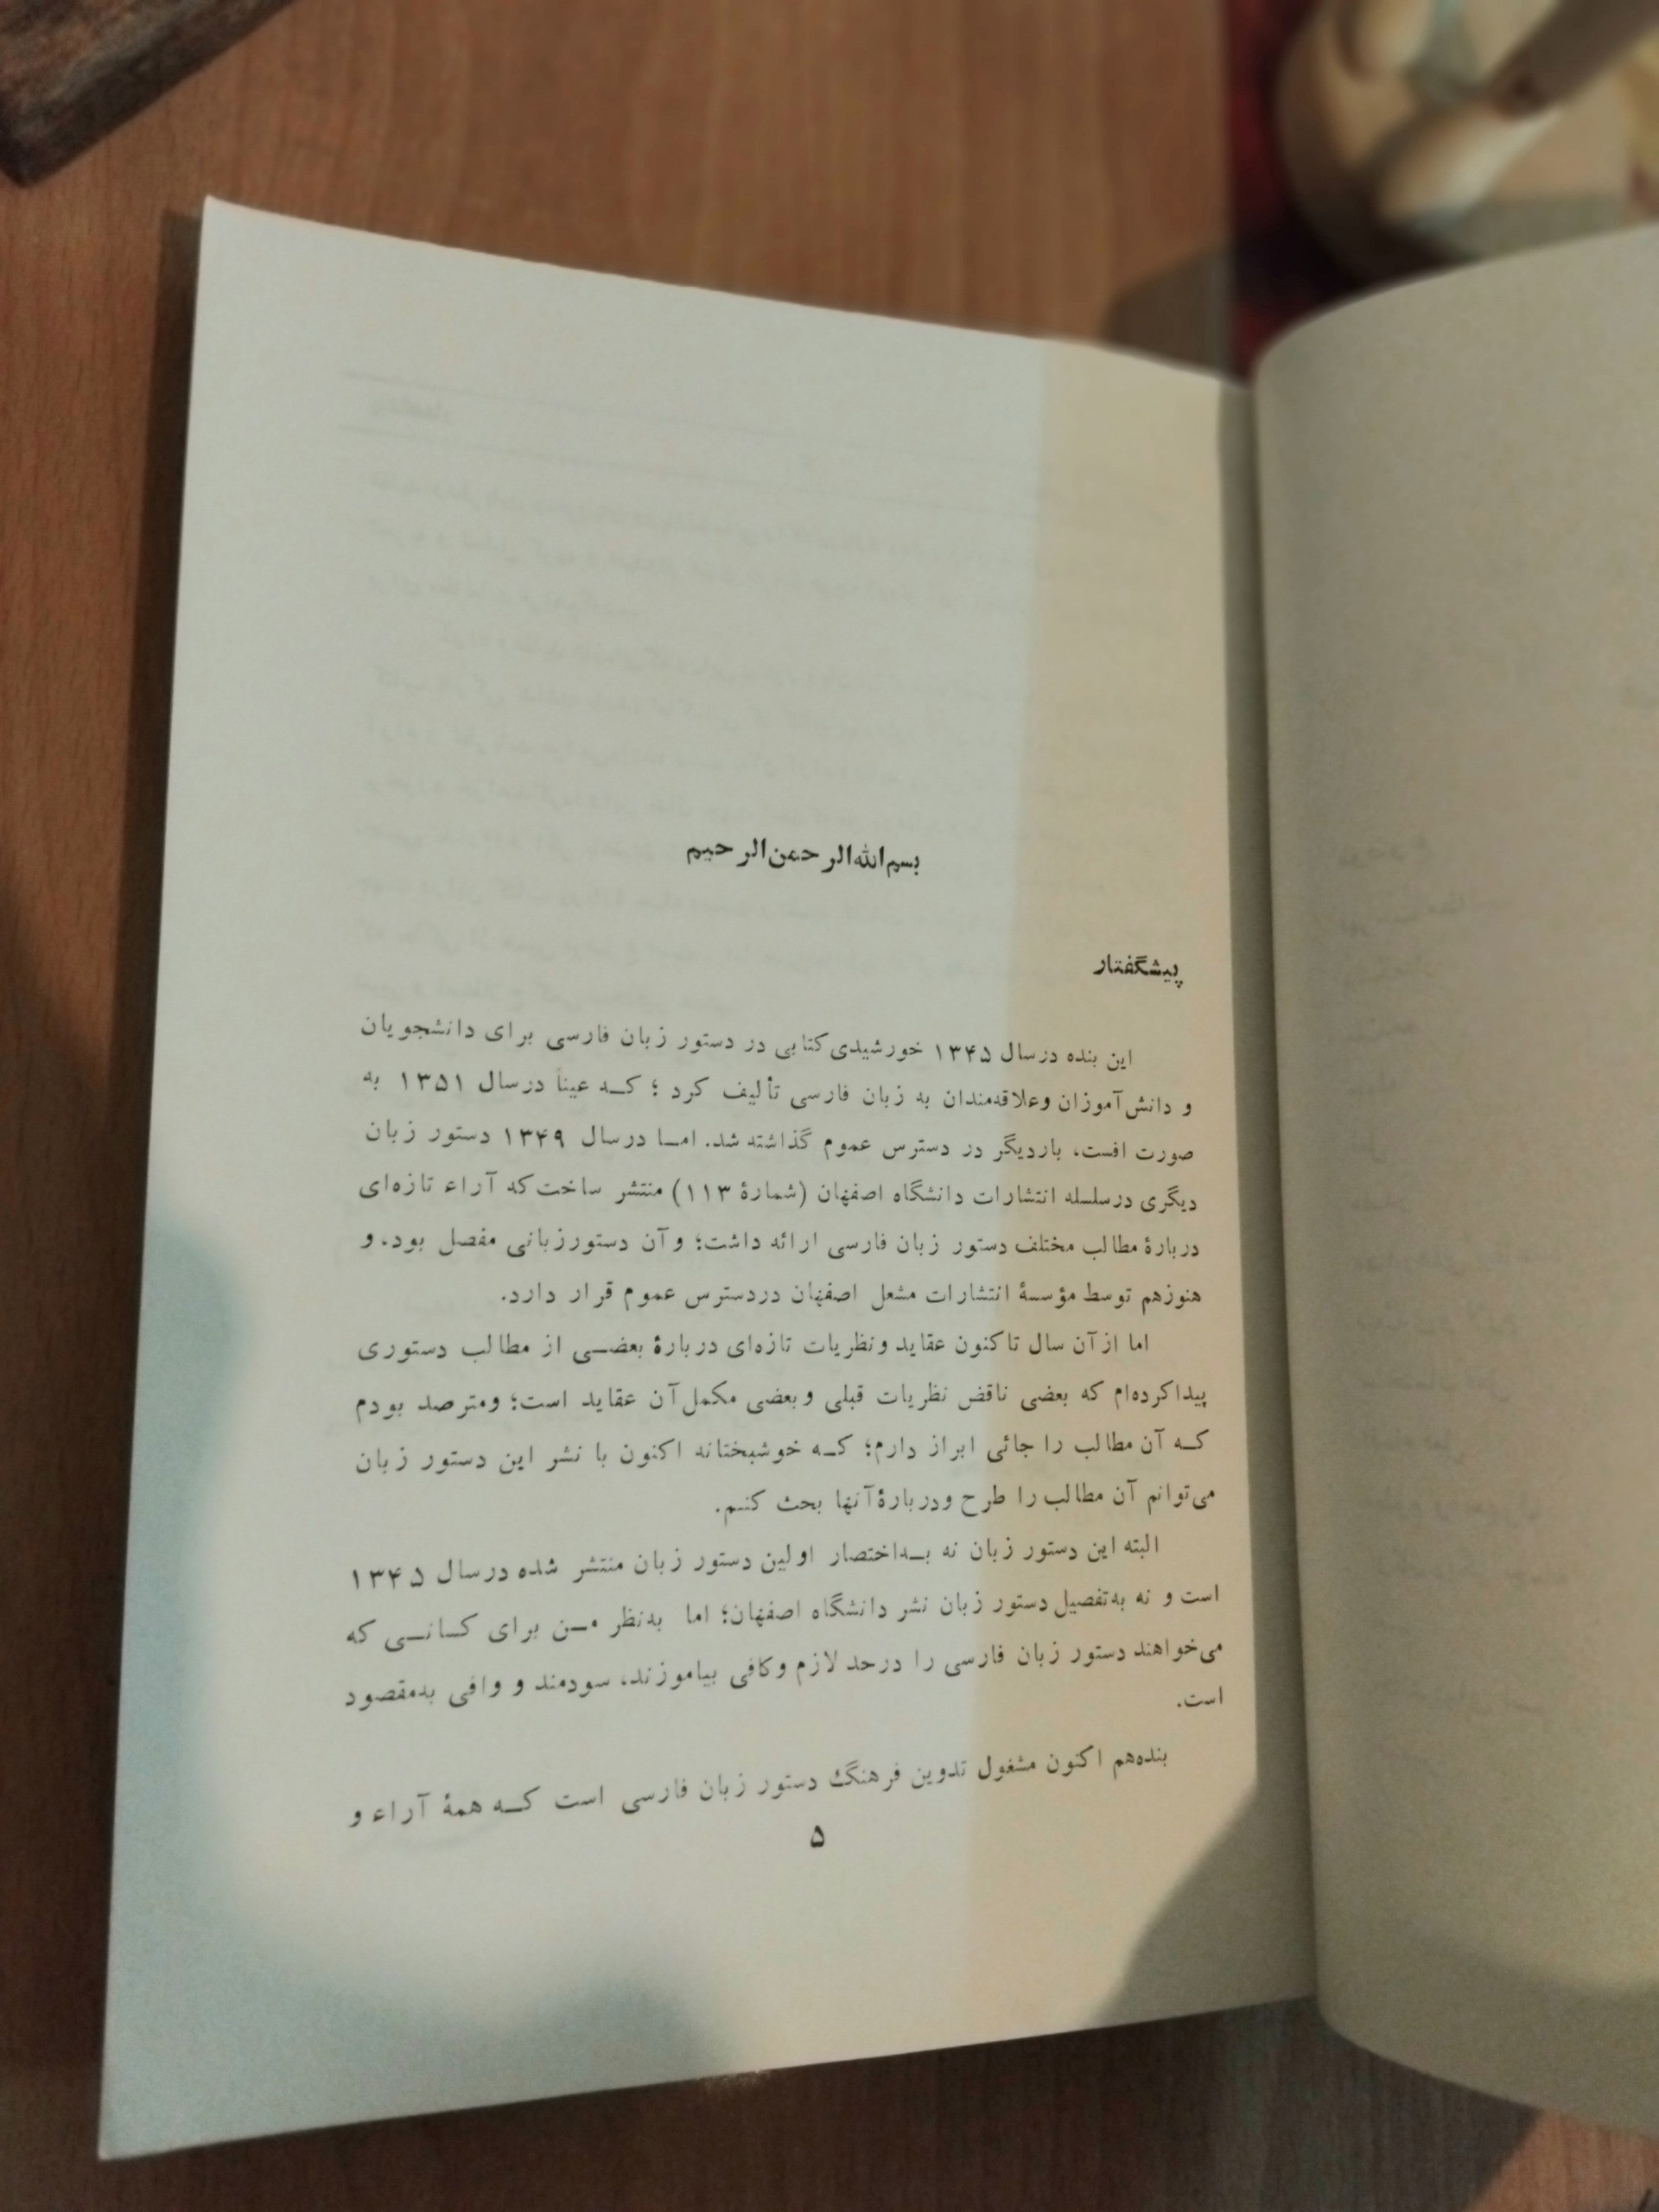 بسم‌الله‌الرحمن‌الرحیم
پیشگفتار
این بنده درسال ۱۳۴۵ خورشیدی کتابی در دستور زبان فارسی برای دانشجویان
و دانش‌آموزان وعلاقه‌مندان به زبان فارسی تألیف کرد ؛ کـه عیناً درسال ۱۳۵۱ به
صورت افست، باردیگر در دسترس عموم گذاشته شد. امـا درسال ۱۳۴۹ دستور زبان
دیگری درسلسله انتشارات دانشگاه اصفهان (شمارهٔ ۱۱۳) منتشر ساخت که آراء تازه‌ای
دربارهٔ مطالب مختلف دستور زبان فارسی ارائه داشت؛ و آن دستورزبانی مفصل بود. و
هنوزهم توسط مؤسسهٔ انتشارات مشعل اصفهان دردسترس عموم قرار دارد.
اما از آن سال تاکنون عقاید ونظریات تازه‌ای دربارهٔ بعضـی از مطالب دستوری
پیداکرده‌ام که بعضی ناقض نظریات قبلی وبعضی مکمل آن عقاید است؛ ومترصد بودم
کـه آن مطالب را جائی ابراز دارم؛ کـه خوشبختانه اکنون با نشر این دستور زبان
می‌توانم آن مطالب را طرح ودربارهٔ آنها بحث کنم.
البته این دستور زبان نه بـه‌اختصار اولین دستور زبان منتشر شده درسال ۱۳۴۵
است و نه به‌تفصیل دستور زبان نشر دانشگاه اصفهان؛ اما به‌نظر مـن برای کسانـی که
می‌خواهند دستور زبان فارسی را درحد لازم وکافی بیاموزند، سودمند و وافی به‌مقصود
است.
بنده‌هم اکنون مشغول تدوین فرهنگ دستور زبان فارسی است کـه همهٔ آراء و
۵